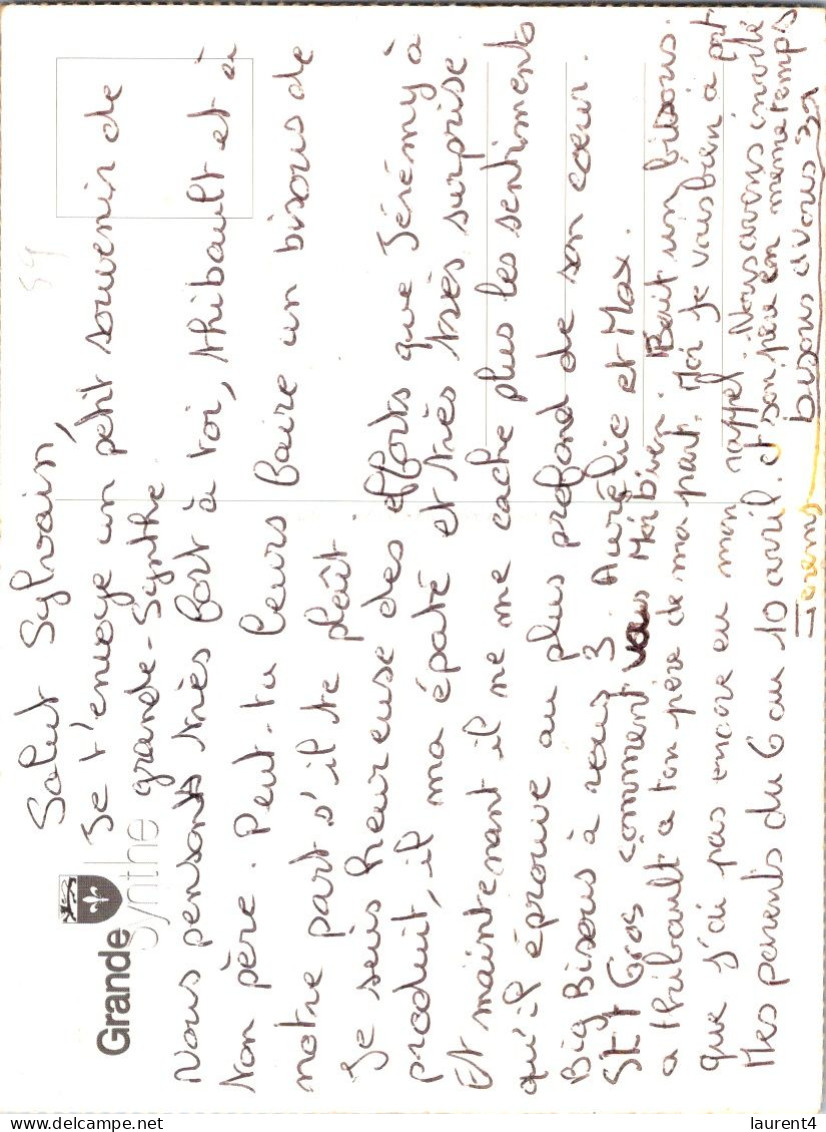 Grande
Synthe
59
Salut Sylvain,
Je t'envoye un petit souvenir de
grande-Synthe
Nous pensont très fort à toi, thibault et à
ton père. Peut-tu leurs faire un bisous de
notre part s'il te plaît.
Je suis heureuse des efforts que Jérémy à
produit, il ma épaté et très très surprise
Et maintenant il ne me cache plus les sentiments
qu'il éprouve au plus profond de son coeur.
Big Bisous à vous 3. Aurélie et Max.
Gros comment vous Moi bien. Fait un bisous.
a thibault a ton père de ma part. Moi je vais bien à part
que j'ai pas encore eu mon rappel. Nous avons invité
Mes parents du 6 au 10 avril. et son père en meme temps
Jeremy bisous a vous 3
laurent4